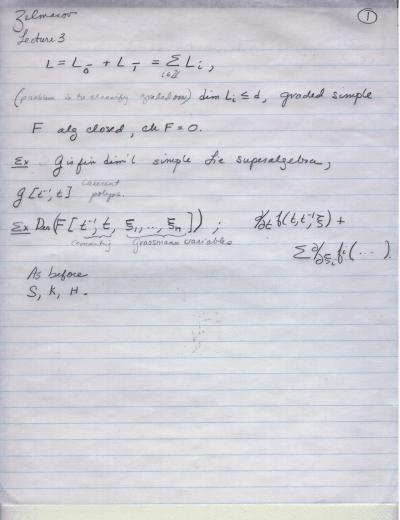 Zelmanov
①
Lecture 3
L = L_0̄ + L_1̄ = Σ_{i∈ℤ} L_i ,
(problem is to classify graded ones) dim L_i ≤ d, graded simple
F alg closed, ch F = 0.
Ex g is fin dim'l simple Lie superalgebra,
g[t⁻¹, t] Laurent polys.
Ex Der(F[t⁻¹, t, ξ_1, ..., ξ_n]) ; ∂/∂t f(t, t⁻¹, ξ) +
commuting Grassmann variables
Σ ∂/∂ξ_i f_i (...)
As before
S, K, H.